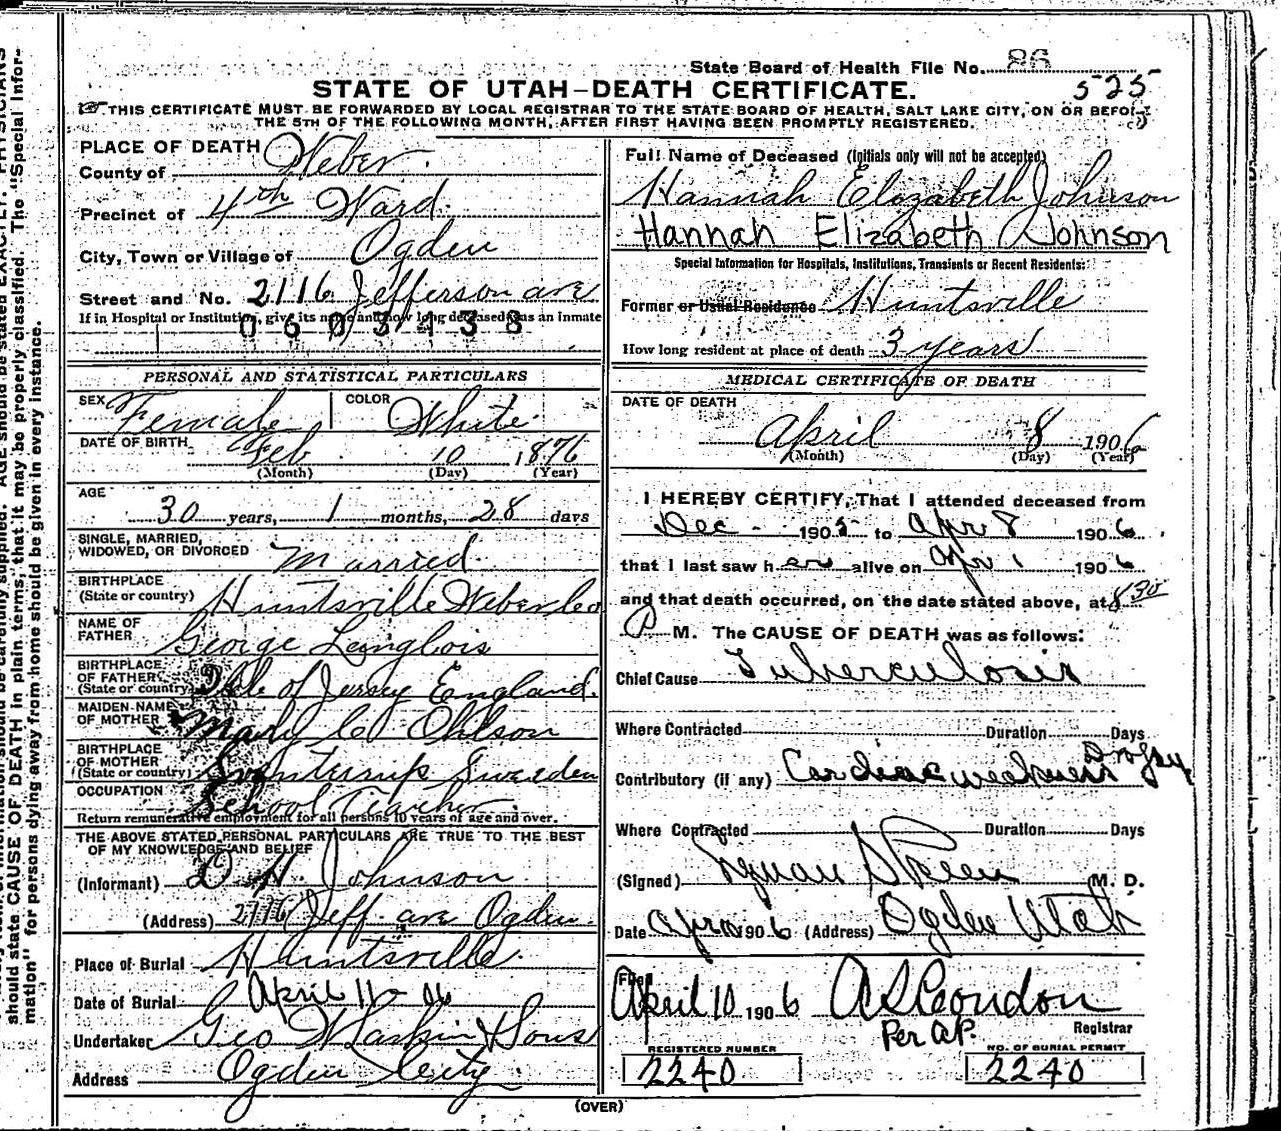 State Board of Health File No. 86
525
STATE OF UTAH—DEATH CERTIFICATE.
THIS CERTIFICATE MUST BE FORWARDED BY LOCAL REGISTRAR TO THE STATE BOARD OF HEALTH, SALT LAKE CITY, ON OR BEFORE
THE 5TH OF THE FOLLOWING MONTH, AFTER FIRST HAVING BEEN PROMPTLY REGISTERED.
PLACE OF DEATH
County of Weber
Precinct of 4th Ward
City, Town or Village of Ogden
Street and No. 2116 Jefferson ave
If in Hospital or Institution, give its name and how long deceased was an inmate
0603438
PERSONAL AND STATISTICAL PARTICULARS
SEX Female COLOR White
DATE OF BIRTH Feb 10 1876
(Month) (Day) (Year)
AGE
30 years, 1 months, 28 days
SINGLE, MARRIED,
WIDOWED, OR DIVORCED Married
BIRTHPLACE
(State or country) Huntsville Weber Co
NAME OF
FATHER George Langlois
BIRTHPLACE
OF FATHER
(State or country) Isle of Jersey England.
MAIDEN NAME
OF MOTHER Mary C Ohlson
BIRTHPLACE
OF MOTHER
(State or country) Sweden
OCCUPATION School Teacher.
Return remunerative employment for all persons 10 years of age and over.
THE ABOVE STATED PERSONAL PARTICULARS ARE TRUE TO THE BEST
OF MY KNOWLEDGE AND BELIEF
(Informant) D. H. Johnson
(Address) 2116 Jeff. ave Ogden
Place of Burial Huntsville.
Date of Burial April 11-06
Undertaker Geo W Larkin & Sons
Address Ogden City
Full Name of Deceased (Initials only will not be accepted)
Hannah Elizabeth Johnson
Hannah Elizabeth Johnson
Special Information for Hospitals, Institutions, Transients or Recent Residents:
Former or Usual Residence Huntsville
How long resident at place of death 3 years
MEDICAL CERTIFICATE OF DEATH
DATE OF DEATH
April 8 1906
(Month) (Day) (Year)
I HEREBY CERTIFY, That I attended deceased from
Dec 1905 to Apr 8 1906
that I last saw her alive on Apr 1 1906
and that death occurred, on the date stated above, at 8 30
P M. The CAUSE OF DEATH was as follows:
Chief Cause Tuberculosis
Where Contracted Duration Days
Contributory (if any) Cardiac weakness Dropsy
Where Contracted Duration Days
(Signed) Lyman Skeen M. D.
Date Apr 1906 (Address) Ogden Utah
Filed
April 10 1906 A S Condon
Per A.P. Registrar
REGISTERED NUMBER NO. OF BURIAL PERMIT
2240 2240
(OVER)
should state CAUSE OF DEATH in plain terms, that it may be properly classified. The "Special Infor-
mation" for persons dying away from home should be given in every instance.